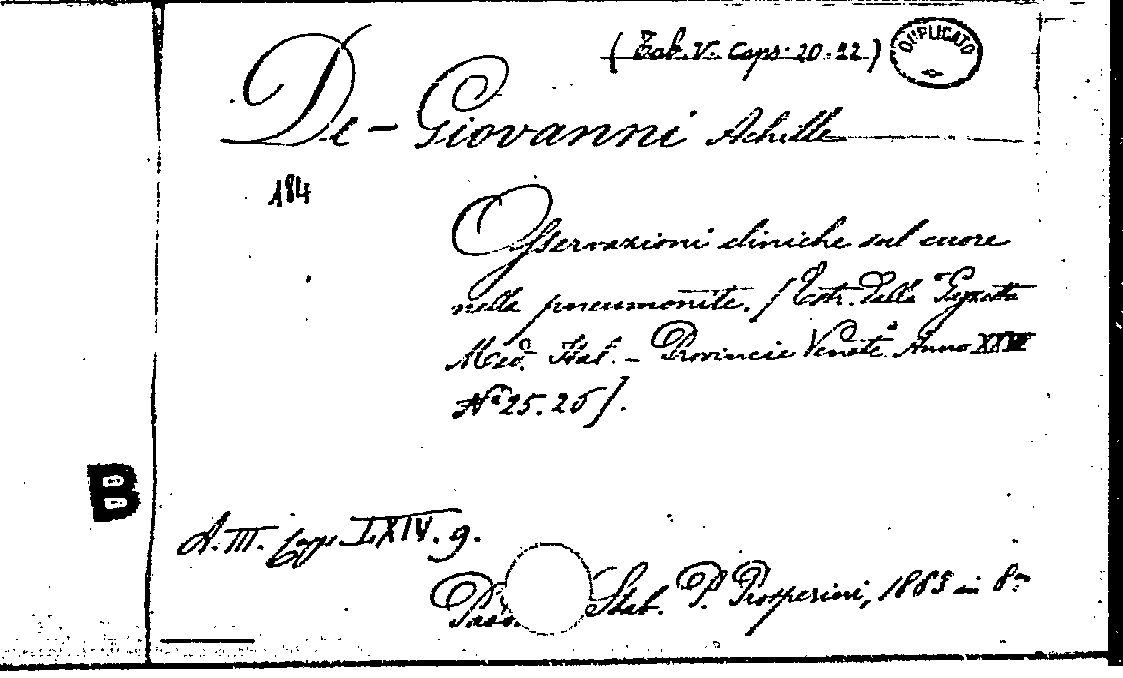 (Tab. V. Caps. 20. 22) DUPLICATO
De-Giovanni Achille
184
Osservazioni cliniche sul cuore
nella pneumonite. [Estr. dalla Gazzetta
Med. Ital. - Provincie Venete Anno
Nº 25. 26].
B
A. III. Caps. LXIV. 9.
Pado. Stab. P. Prosperini, 1883 in 8º